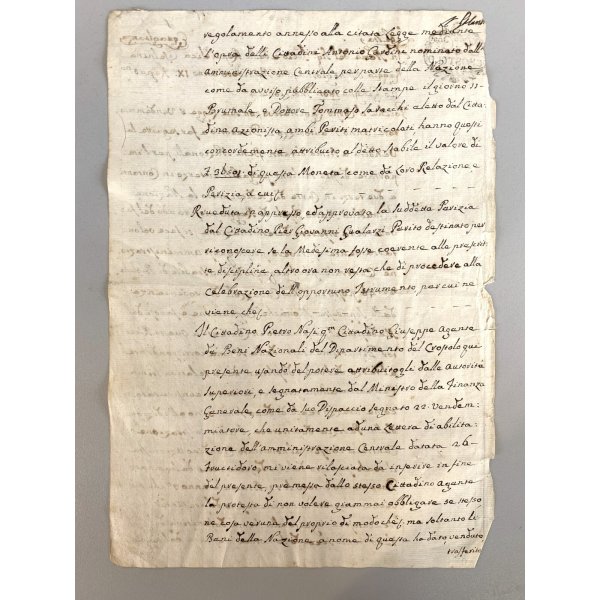 regolamento annesso alla citata Legge mediante
l'opra delli Cittadini Antonio Cardini nominato dall'
amministrazione Centrale per parte della Nazione
come da avviso pubblicato colle Stampe il giorno 11
Brumale e Dottore Tommaso eletto dal Citta
dina azionista, ambi Periti matricolati hanno questi
concordemente attribuito al detto stabile il valore di
di questa Moneta come da loro Relazione e
Perizia, a cui
Riveduta in appresso, ed approvata la suddetta Perizia
dal Cittadino Pier Giovanni Gualerzi Perito destinato per
riconoscere se la Medesima fosse coerente alle prescrit
te discipline, altro ora non resta che di procedere alla
celebrazione dell'opportuno Istrumento, per cui ne
viene che
Il Cittadino Pietro Nasi qm Cittadino Giuseppe Agente
de Beni Nazionali del Dipartimento del Crostolo qui
presente usando del potere attribuitogli dalle autorità
superiori, e segnatamente dal Ministro della Finanza
Generale, come da suo Dispaccio segnato 22 Vendem:
miatore, che unitamente ad una lettera di abilita:
zione dell'amministrazione Centrale datata 26
Fruttidoro, mi viene rilasciata da inserire in fine
del presente, premessa dallo stesso Cittadino Agente
la protesta di non volere giammai obbligare se stesso
ne cosa veruna del proprio di modochè, ma soltanto li
Beni della Nazione a nome di questa ha dato venduto
trasferito